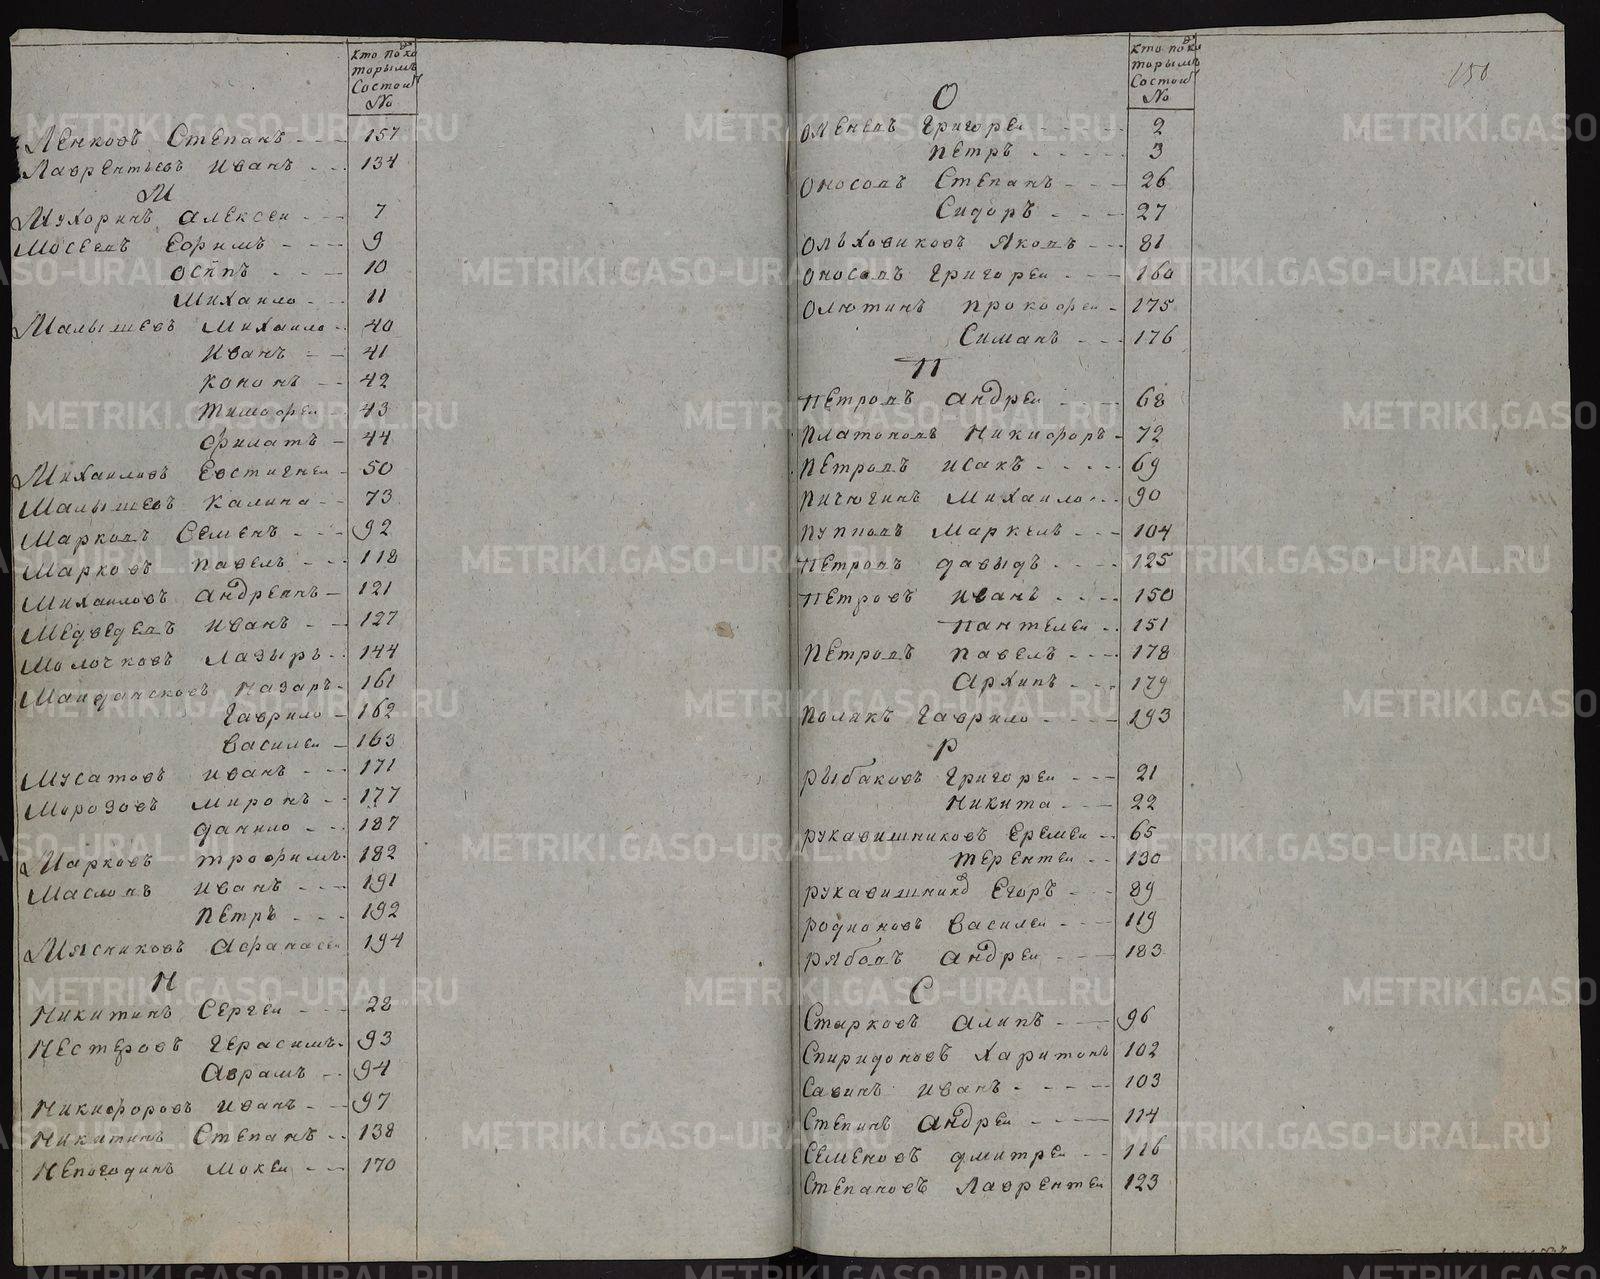 Кто по ко
торымъ
Состоитъ
No
Ленковъ Степанъ - - - 157
Лаврентьевъ Иванъ - - - 134
М
Мухоринъ Алексеи - - - 7
Мосеевъ Ефимъ - - - 9
Осипъ - - - 10
Михаило - - - 11
Малышевъ Михаило - - 40
Иванъ - - 41
Кононъ - - 42
Тимофеи - 43
Филатъ - 44
Михаиловъ Евстигнеи - 50
Малышевъ Калина - - 73
Марковъ Семенъ - - - 92
Марковъ Павелъ - - - 118
Михаиловъ Андреянъ - 121
Медведевъ Иванъ - - - 127
Молочковъ Лазырь - - 144
Маидансковъ Назаръ - 161
Гаврило - 162
Василеи - 163
Мусатовъ Иванъ - - - 171
Морозовъ Миронъ - - 177
Данило - - - 187
Марковъ Трофимъ - 182
Масловъ Иванъ - - - 191
Петръ - - - 192
Мясниковъ Афанасеи 194
Н
Никитинъ Сергеи - - - 28
Нестеровъ Герасимъ - 93
Аврамъ - - 94
Никифоровъ Иванъ - - - 97
Никитинъ Степанъ - - 138
Непогодинъ Мокеи - - - 170
150
Кто по ко
торымъ
Состоитъ
No
О
Оленевъ Григореи - - - - 2
Петръ - - - - - 3
Оносовъ Степанъ - - - 26
Сидоръ - - - 27
Ольховиковъ Яковъ - - - 81
Оносовъ Григореи - - - 160
Олютинъ Прокофеи - 175
Симанъ - - - 176
П
Петровъ Андреи - - - - 68
Платоновъ Никифоръ - 72
Петровъ Исакъ - - - - - 69
Пичюгинъ Михаило - - - 90
Пупповъ Маркелъ - - - 104
Петровъ Давыдъ - - - - 125
Петровъ Иванъ - - - - 150
Пантелеи - - 151
Петровъ Павелъ - - - - 178
Архипъ - - - 179
Полякъ Гаврило - - - - 193
Р
Рыбаковъ Григореи - - - 21
Никита - - - 22
Рукавишниковъ Еремеи - - 65
Терентеи - - 130
Рукавишниковъ Егоръ - - - 89
Родионовъ Василеи - - - 119
Рябовъ Андреи - - - 183
С
Старковъ Алипъ - - - 96
Спиридоновъ Харитонъ 102
Савинъ Иванъ - - - - 103
Степинъ Андреи - - - - 114
Семеновъ Дмитреи - - 116
Степановъ Лаврентеи 123